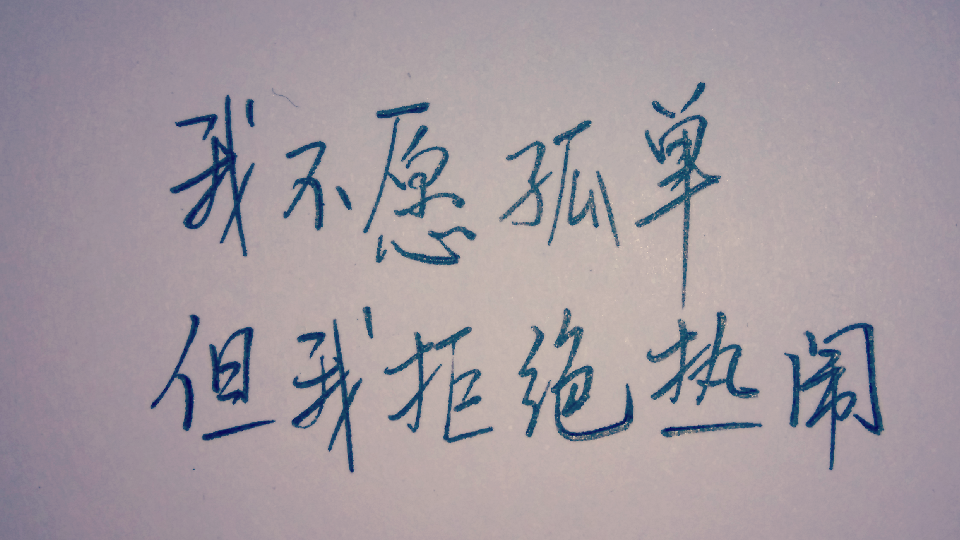 我不愿孤单
但我拒绝热闹